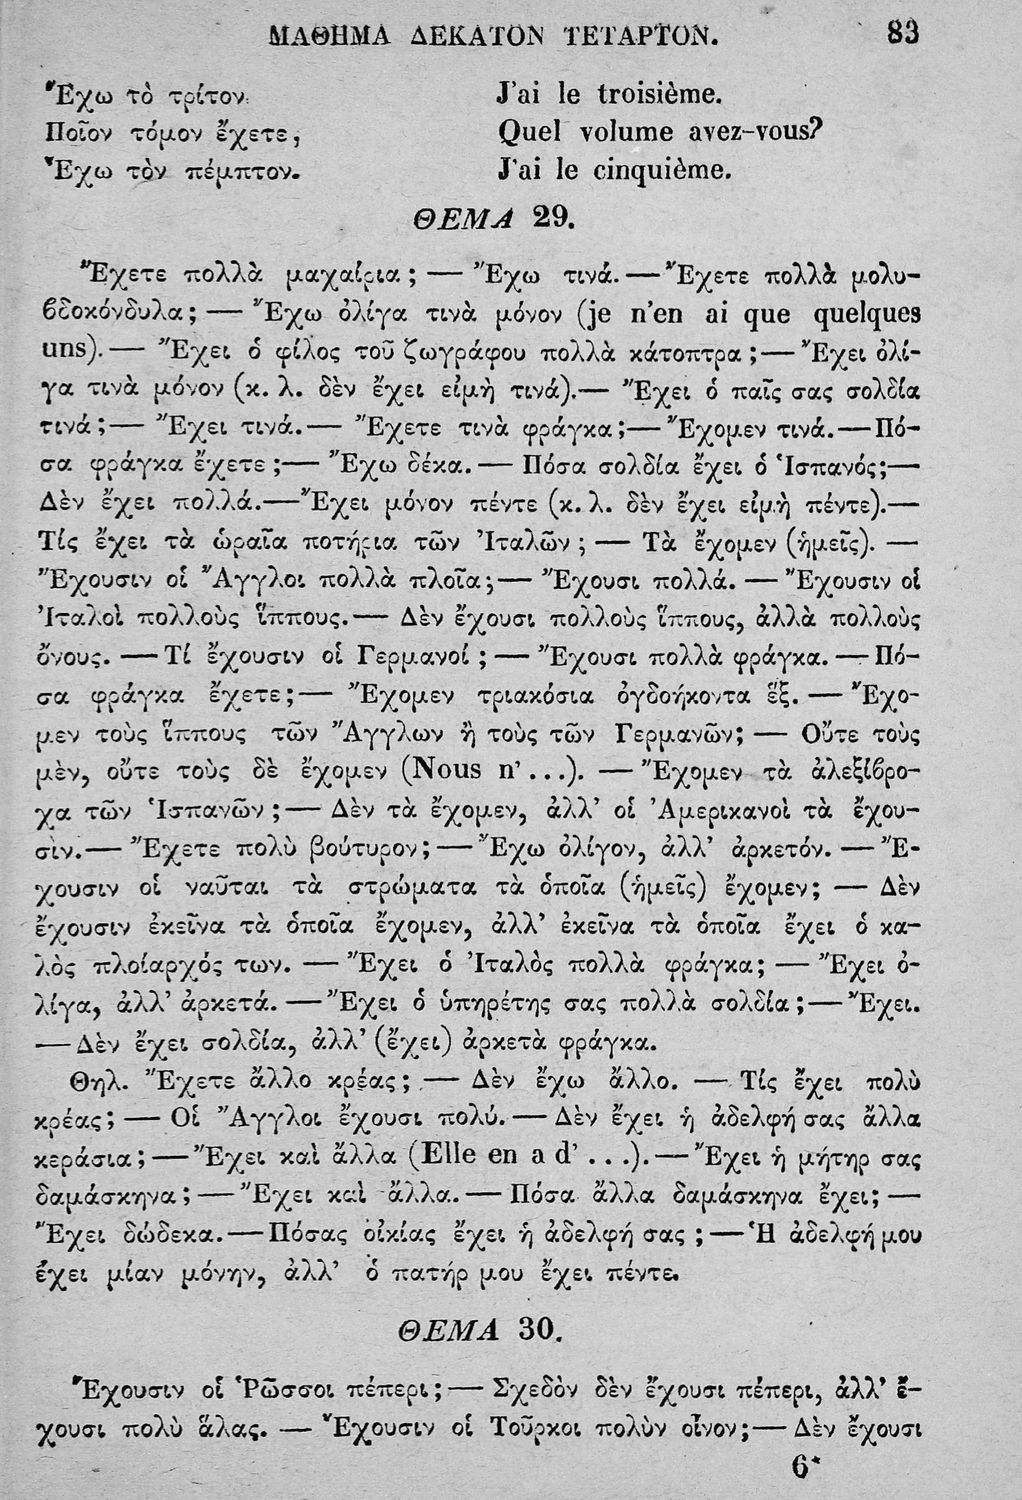 ΜΑΘΗΜΑ ΔΕΚΑΤΟΝ ΤΕΤΑΡΤΟΝ. 83
Ἔχω τὸ τρίτον. J'ai le troisième.
Ποῖον τόμον ἔχετε; Quel volume avez-vous?
Ἔχω τὸν πέμπτον. J'ai le cinquième.
ΘΕΜΑ 29.
Ἔχετε πολλὰ μαχαίρια; — Ἔχω τινά. — Ἔχετε πολλὰ μολυ-
βδοκόνδυλα; — Ἔχω ὀλίγα τινὰ μόνον (je n'en ai que quelques
uns). — Ἔχει ὁ φίλος τοῦ ζωγράφου πολλὰ κάτοπτρα; — Ἔχει ὀλί-
γα τινὰ μόνον (κ. λ. δὲν ἔχει εἰμὴ τινά). — Ἔχει ὁ παῖς σας σολδία
τινά; — Ἔχει τινά. — Ἔχετε τινὰ φράγκα; — Ἔχομεν τινά. — Πό-
σα φράγκα ἔχετε; — Ἔχω δέκα. — Πόσα σολδία ἔχει ὁ Ἱσπανός; —
Δὲν ἔχει πολλά. — Ἔχει μόνον πέντε (κ. λ. δὲν ἔχει εἰμὴ πέντε). —
Τίς ἔχει τὰ ὡραῖα ποτήρια τῶν Ἰταλῶν; — Τὰ ἔχομεν (ἡμεῖς). —
Ἔχουσιν οἱ Ἄγγλοι πολλὰ πλοῖα; — Ἔχουσι πολλά. — Ἔχουσιν οἱ
Ἰταλοὶ πολλοὺς ἵππους. — Δὲν ἔχουσι πολλοὺς ἵππους, ἀλλὰ πολλοὺς
ὄνους. — Τί ἔχουσιν οἱ Γερμανοί; — Ἔχουσι πολλὰ φράγκα. — Πό-
σα φράγκα ἔχετε; — Ἔχομεν τριακόσια ὀγδοήκοντα ἕξ. — Ἔχο-
μεν τοὺς ἵππους τῶν Ἄγγλων ἢ τοὺς τῶν Γερμανῶν; — Οὔτε τοὺς
μὲν, οὔτε τοὺς δὲ ἔχομεν (Nous n'...). — Ἔχομεν τὰ ἀλεξίβρο-
χα τῶν Ἱσπανῶν; — Δὲν τὰ ἔχομεν, ἀλλ' οἱ Ἀμερικανοὶ τὰ ἔχου-
σιν. — Ἔχετε πολὺ βούτυρον; — Ἔχω ὀλίγον, ἀλλ' ἀρκετόν. — Ἔ-
χουσιν οἱ ναῦται τὰ στρώματα τὰ ὁποῖα (ἡμεῖς) ἔχομεν; — Δὲν
ἔχουσιν ἐκεῖνα τὰ ὁποῖα ἔχομεν, ἀλλ' ἐκεῖνα τὰ ὁποῖα ἔχει ὁ κα-
λὸς πλοίαρχός των. — Ἔχει ὁ Ἰταλὸς πολλὰ φράγκα; — Ἔχει ὀ-
λίγα, ἀλλ' ἀρκετά. — Ἔχει ὁ ὑπηρέτης σας πολλὰ σολδία; — Ἔχει.
— Δὲν ἔχει σολδία, ἀλλ' (ἔχει) ἀρκετὰ φράγκα.
Θηλ. Ἔχετε ἄλλο κρέας; — Δὲν ἔχω ἄλλο. — Τίς ἔχει πολὺ
κρέας; — Οἱ Ἄγγλοι ἔχουσι πολύ. — Δὲν ἔχει ἡ ἀδελφή σας ἄλλα
κεράσια; — Ἔχει καὶ ἄλλα (Elle en a d'...). — Ἔχει ἡ μήτηρ σας
δαμάσκηνα; — Ἔχει καὶ ἄλλα. — Πόσα ἄλλα δαμάσκηνα ἔχει; —
Ἔχει δώδεκα. — Πόσας οἰκίας ἔχει ἡ ἀδελφή σας; — Ἡ ἀδελφή μου
ἔχει μίαν μόνην, ἀλλ' ὁ πατήρ μου ἔχει πέντε.
ΘΕΜΑ 30.
Ἔχουσιν οἱ Ῥῶσσοι πέπερι; — Σχεδὸν δὲν ἔχουσι πέπερι, ἀλλ' ἔ-
χουσι πολὺ ἅλας. — Ἔχουσιν οἱ Τοῦρκοι πολὺν οἶνον; — Δὲν ἔχουσι
6*